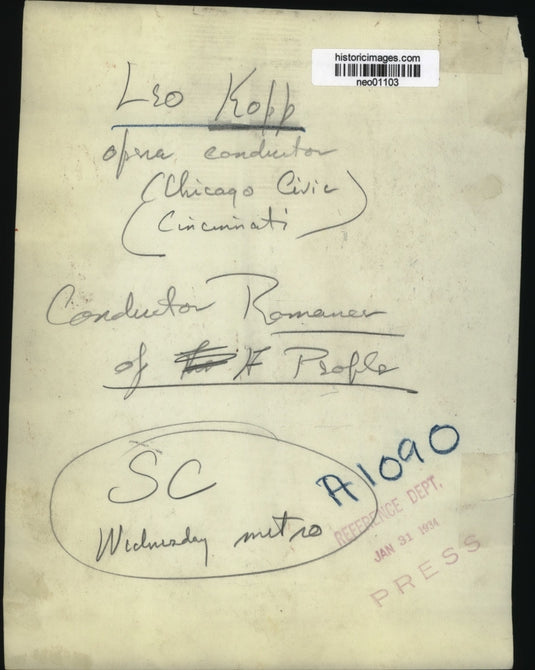 historicimages.com
neo01103
Leo Kopp
opera conductor
(Chicago Civic
(Cincinnati )
Conductor Romance
of A People
SC
Wednesday metro
A1090
REFERENCE DEPT.
JAN 31 1934
PRESS